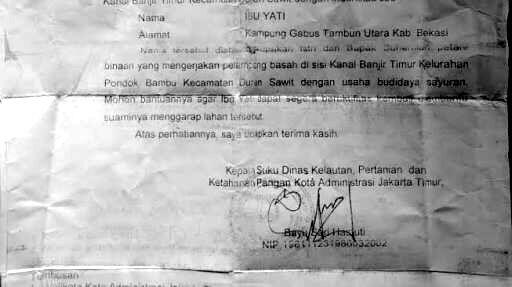 Kanal Banjir Timur Kecamatan Duren Sawit dengan
Nama : IBU YATI
Alamat : Kampung Gabus Tambun Utara Kab Bekasi
Nama tersebut diatas merupakan Istri dari Bapak Suherman petani
binaan yang mengerjakan pelempeng basah di sisi Kanal Banjir Timur Kelurahan
Pondok Bambu Kecamatan Duren Sawit dengan usaha budidaya sayuran.
Mohon bantuannya agar Ibu Yati dapat segera
suaminya menggarap lahan tersebut.
Atas perhatiannya, saya ucapkan terima kasih.
Kepala Suku Dinas Kelautan, Pertanian dan
Ketahanan Pangan Kota Administrasi Jakarta Timur,
Bayu Sari Hastuti
NIP
Tembusan
Kota Administrasi